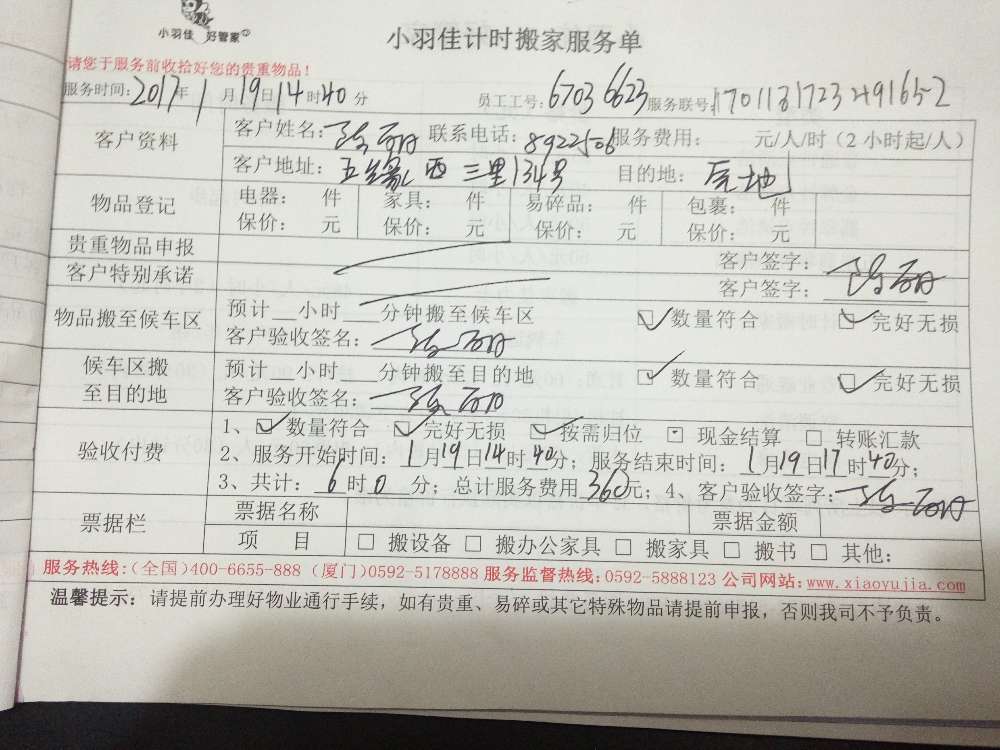 小羽佳 好管家
小羽佳计时搬家服务单
请您于服务前收拾好您的贵重物品！
服务时间：2017年1月19日14时40分 员工工号：6703 6623 服务联号：
客户资料 客户姓名： 联系电话：8922506 服务费用： 元/人/时（2小时起/人）
客户地址：五缘西三里134号 目的地：
物品登记 电器： 件 家具： 件 易碎品： 件 包裹： 件
保价： 元 保价： 元 保价： 元 保价： 元
贵重物品申报 客户签字：
客户特别承诺 客户签字：
物品搬至候车区 预计__小时___分钟搬至候车区 ☑数量符合 ☑完好无损
客户验收签名：
候车区搬至目的地 预计__小时___分钟搬至目的地 ☑数量符合 ☑完好无损
客户验收签名：
验收付费 1、☑数量符合 ☑完好无损 ☑按需归位 ☐现金结算 ☐转账汇款
2、服务开始时间：1月19日14时40分；服务结束时间：1月19日17时40分；
3、共计：6时0分；总计服务费用360元；4、客户验收签字：
票据栏 票据名称 票据金额
项 目 ☐搬设备 ☐搬办公家具 ☐搬家具 ☐搬书 ☐其他：
服务热线：（全国）400-6655-888（厦门）0592-5178888 服务监督热线：0592-5888123 公司网站：www.xiaoyujia.com
温馨提示：请提前办理好物业通行手续，如有贵重、易碎或其它特殊物品请提前申报，否则我司不予负责。